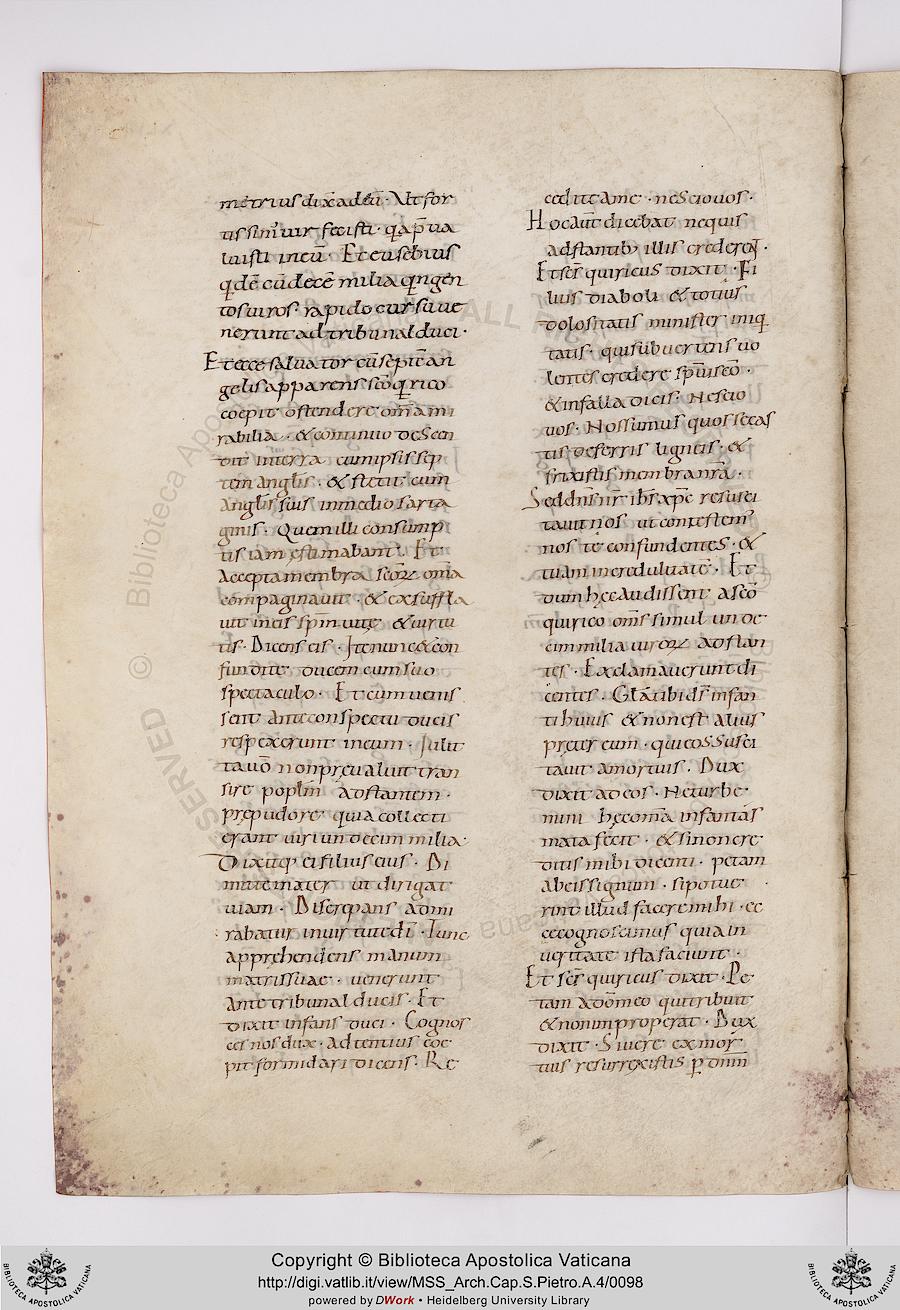 metrius dix̄ ad eū · Ut for
tis sim̄ vir fecisti · q̄ a p̄ va
luisti in eū · Et eusebius
q̄dē cū decē milia q̄ngen
tos uiros · rapido cursu ue
nerunt ad tribunal duci ·
Et ecce saluator cū septē an
gelis apparens sc̄o q̄rico
coepit ostendere om̄a mi
rabilia · & continuo descen
dit in terra cum ipsis sep
tem angl̄is · & stetit cum
angl̄is suis in medio sarta
ginis · Quem illi consump
tis iam estimabant · Et
accepta membra sc̄oꝝ om̄a
compaginauit · & exsuffla
uit in eis sp̄m uitę & uirtu
tis · Dicens eis · Ite nunc & con
fundite ducem cum suo
spectaculo · Et cum uenis
sent ante conspectu ducis
respexerunt in eum · Iulit
ta uō non pręualuit tran
sire pop̄lm̄ adstantem ·
prę pudore quia collecti
erant uiri undecim milia ·
Dixitq; ei filius eius · Di
mitte mater ut dirigat
uiam · Discrepans admi
rabatur in uirtute dī · Tunc
apprehendens manum
matris suae · uenerunt
ante tribunal ducis · Et
dixit infans duci · Cognos
ces nos dux · Ad tentius coe
pit formidari dicens · Re
cedite a me · nescio uos ·
Hoc aūt dicebat ne quis
adstantib; illis crederet ·
Et sc̄s quiricus dixit · Fi
lius diaboli & totius
dolositatis minister iniq
tatis · qui subuertens uo
lentes credere sp̄ui sc̄o ·
& in falla dicis · Nescio
uos · Nos sumus quos secas
tis de ferris ligneis · &
frixistis membra nr̄a ·
Sed dn̄s nr̄ ihs̄ xp̄c resusci
tauit nos ut contestem̄
nos te confundentes · &
tuam incredulitatē · Et
dum hęc audissent a sc̄o
quirico om̄s simul unde
cim milia uiroꝝ adstan
tes · Exclamauerunt di
centes · Glā tibi dś infan
ti huius & non est alius
pręter eum · qui eos susci
tauit a mortuis · Dux
dixit ad eos · Ne turbe
mini hęc om̄a infantās
mata fecit · & si non cre
ditis mihi dicenti · petam
ab eis signum · si potue
rint illud facere mihi · ec
ce cognoscimus quia in
ueritate ista faciunt ·
Et sc̄s quiricus dixit · Pe
tam a dō meo qui tribuit
& non improperat · Dux
dixit · Si uere ex mor
tuis resurrexistis p̄ dn̄m̄
Copyright © Biblioteca Apostolica Vaticana
http://digi.vatlib.it/view/MSS_Arch.Cap.S.Pietro.A.4/0098
powered by DWork • Heidelberg University Library